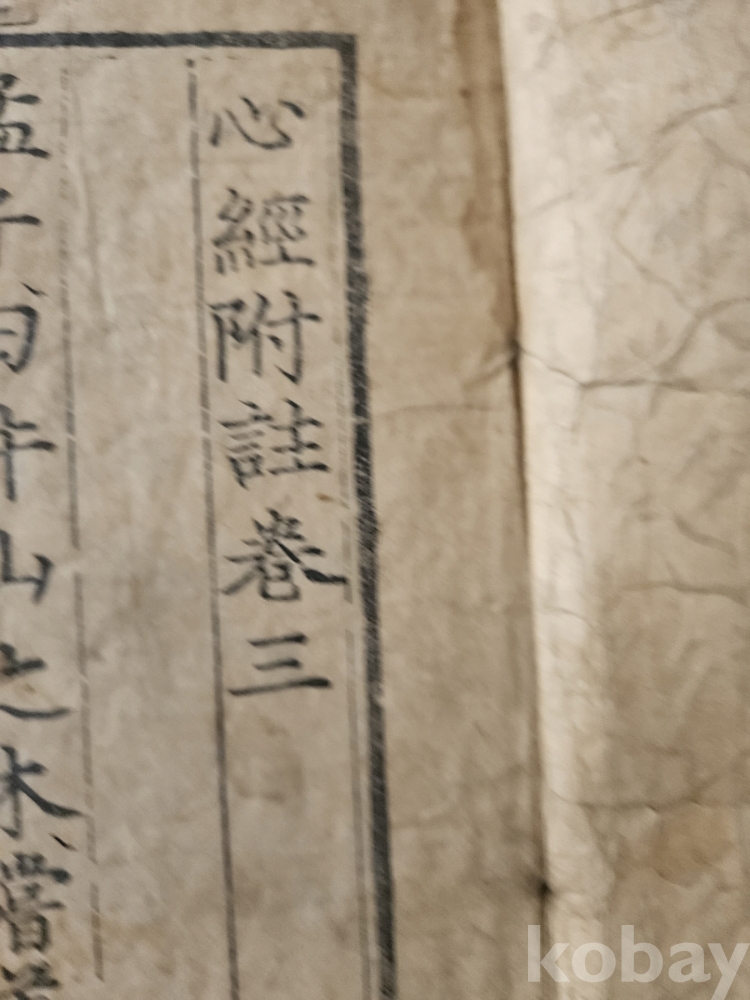 心經附註卷三
孟子曰牛山之木嘗
kobay